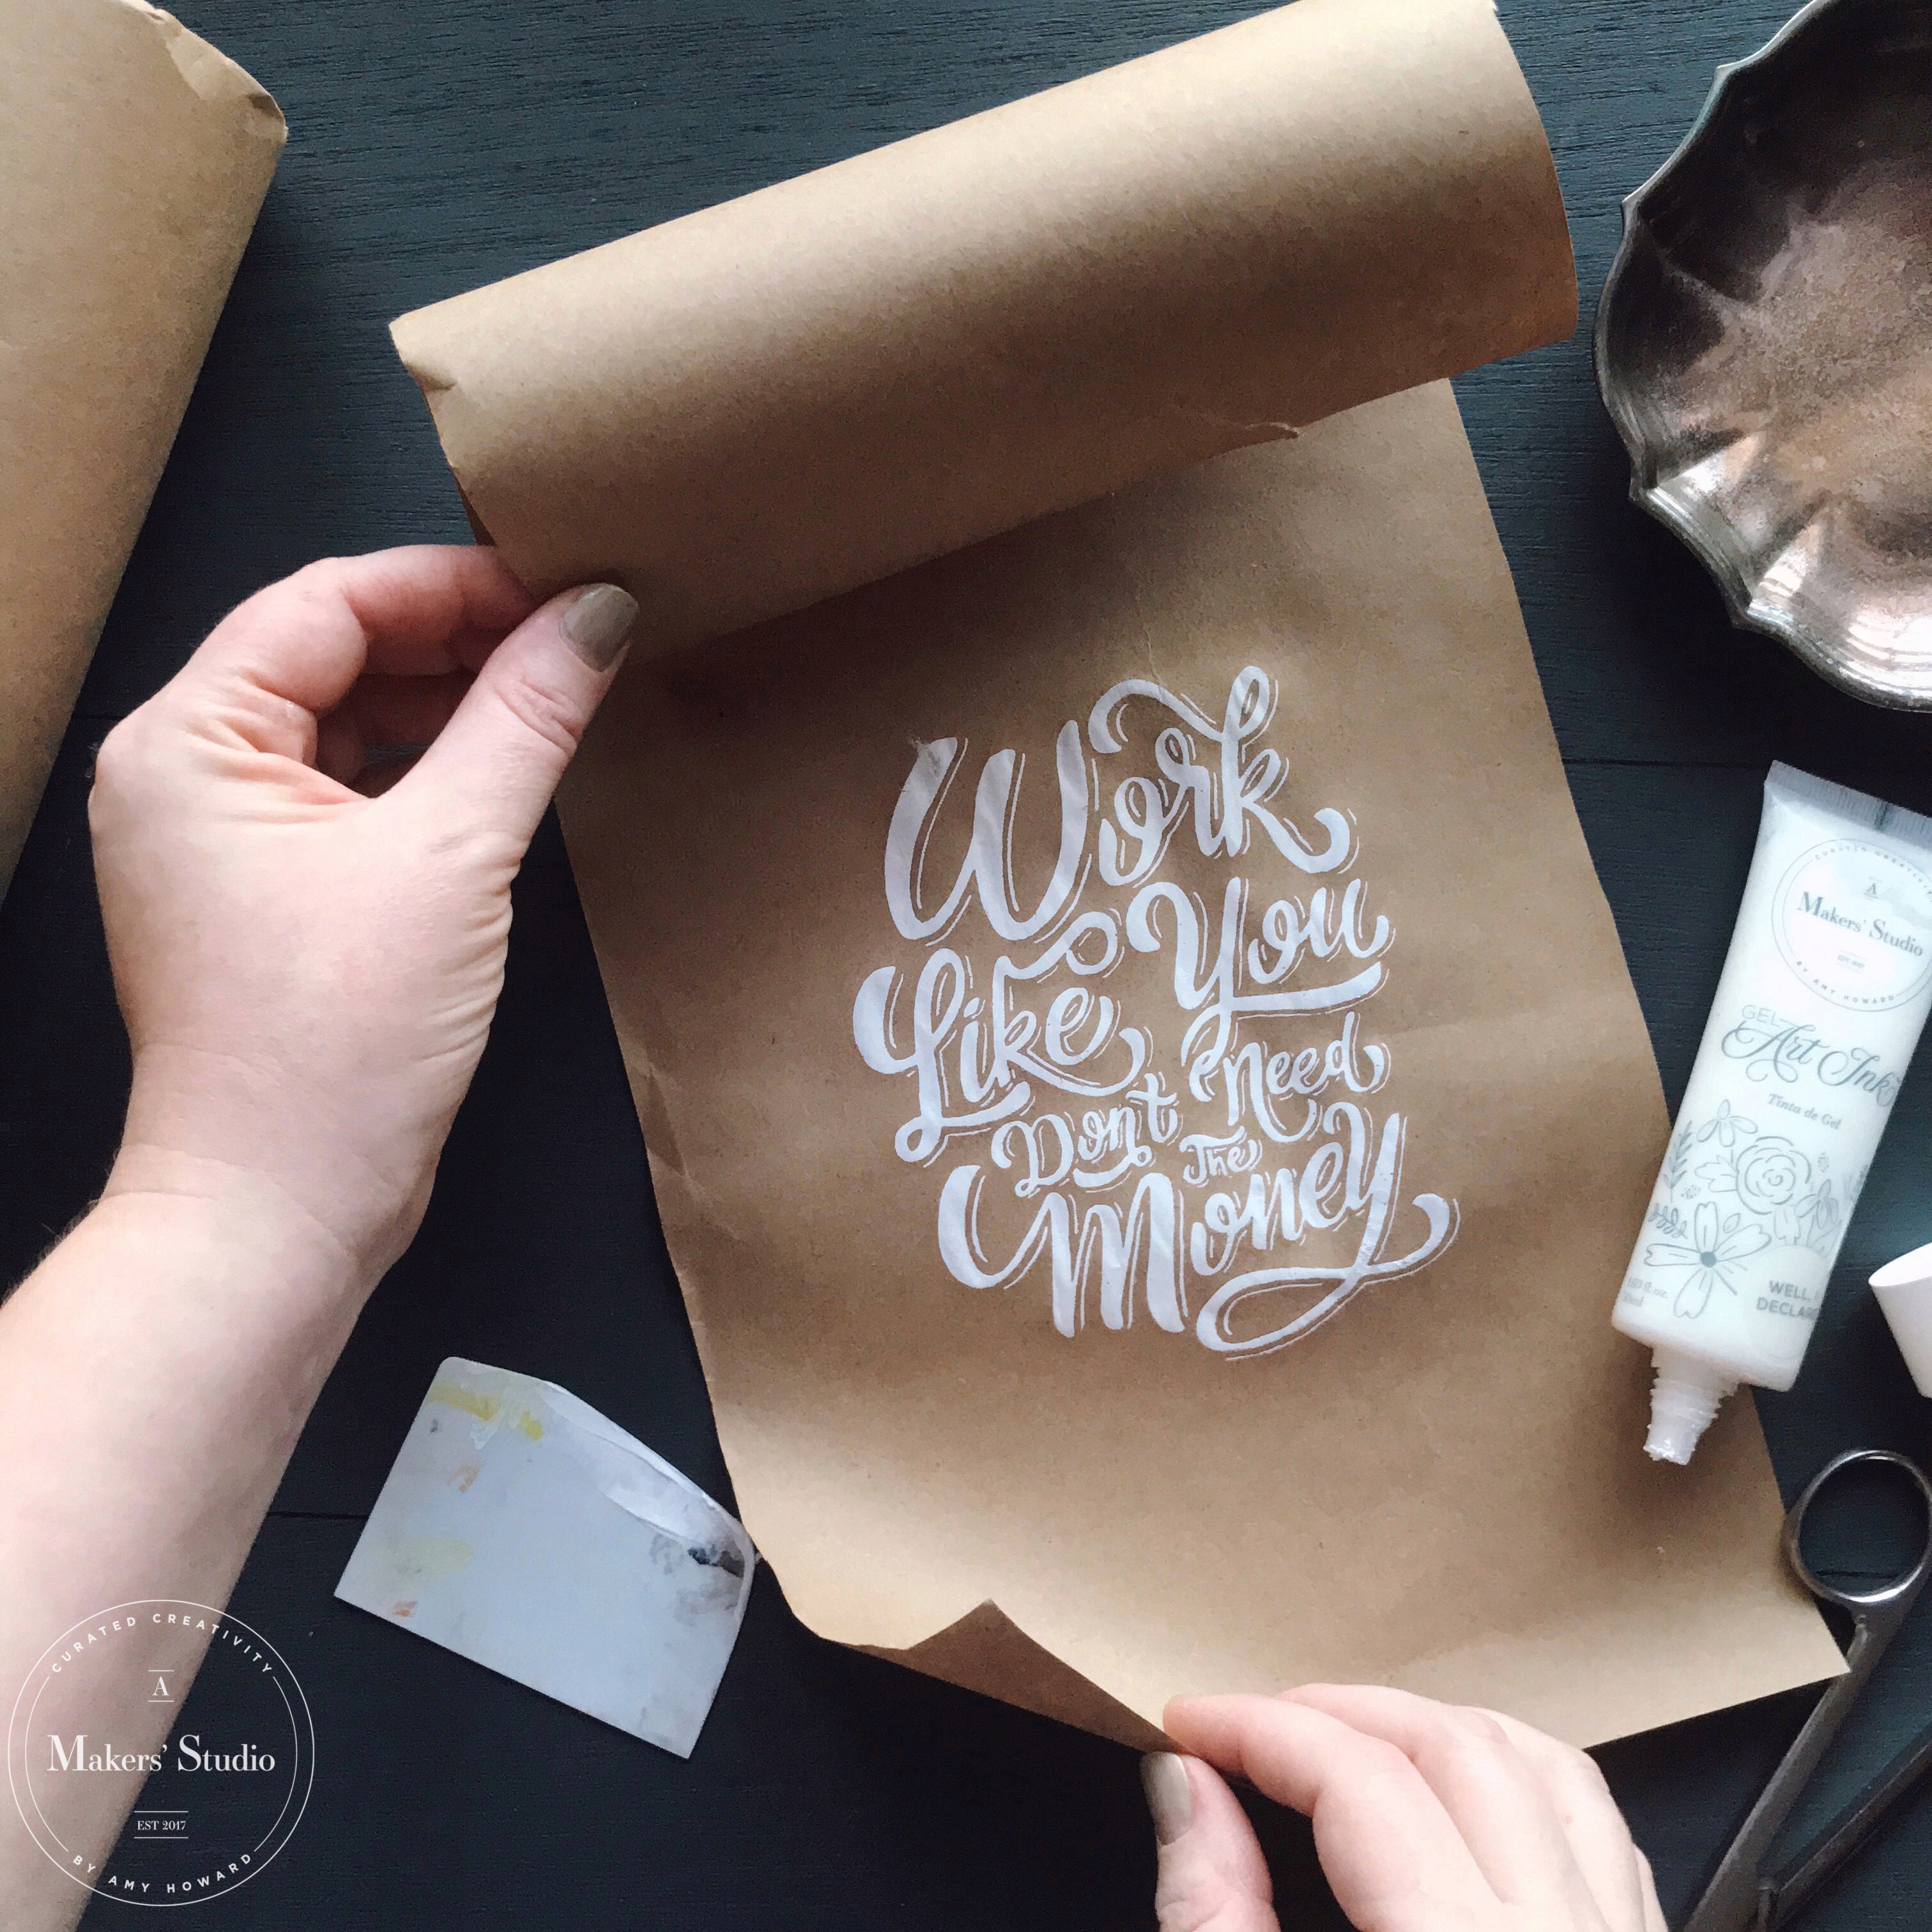 Work
You
Like
Need
Dont
The
Money
A
Makers' Studio
BY AMY HOWARD
GEL
Art Ink
Tinta de Gel
WELL, I
DECLARE
CURATED CREATIVITY
A
Makers' Studio
EST 2017
BY AMY HOWARD